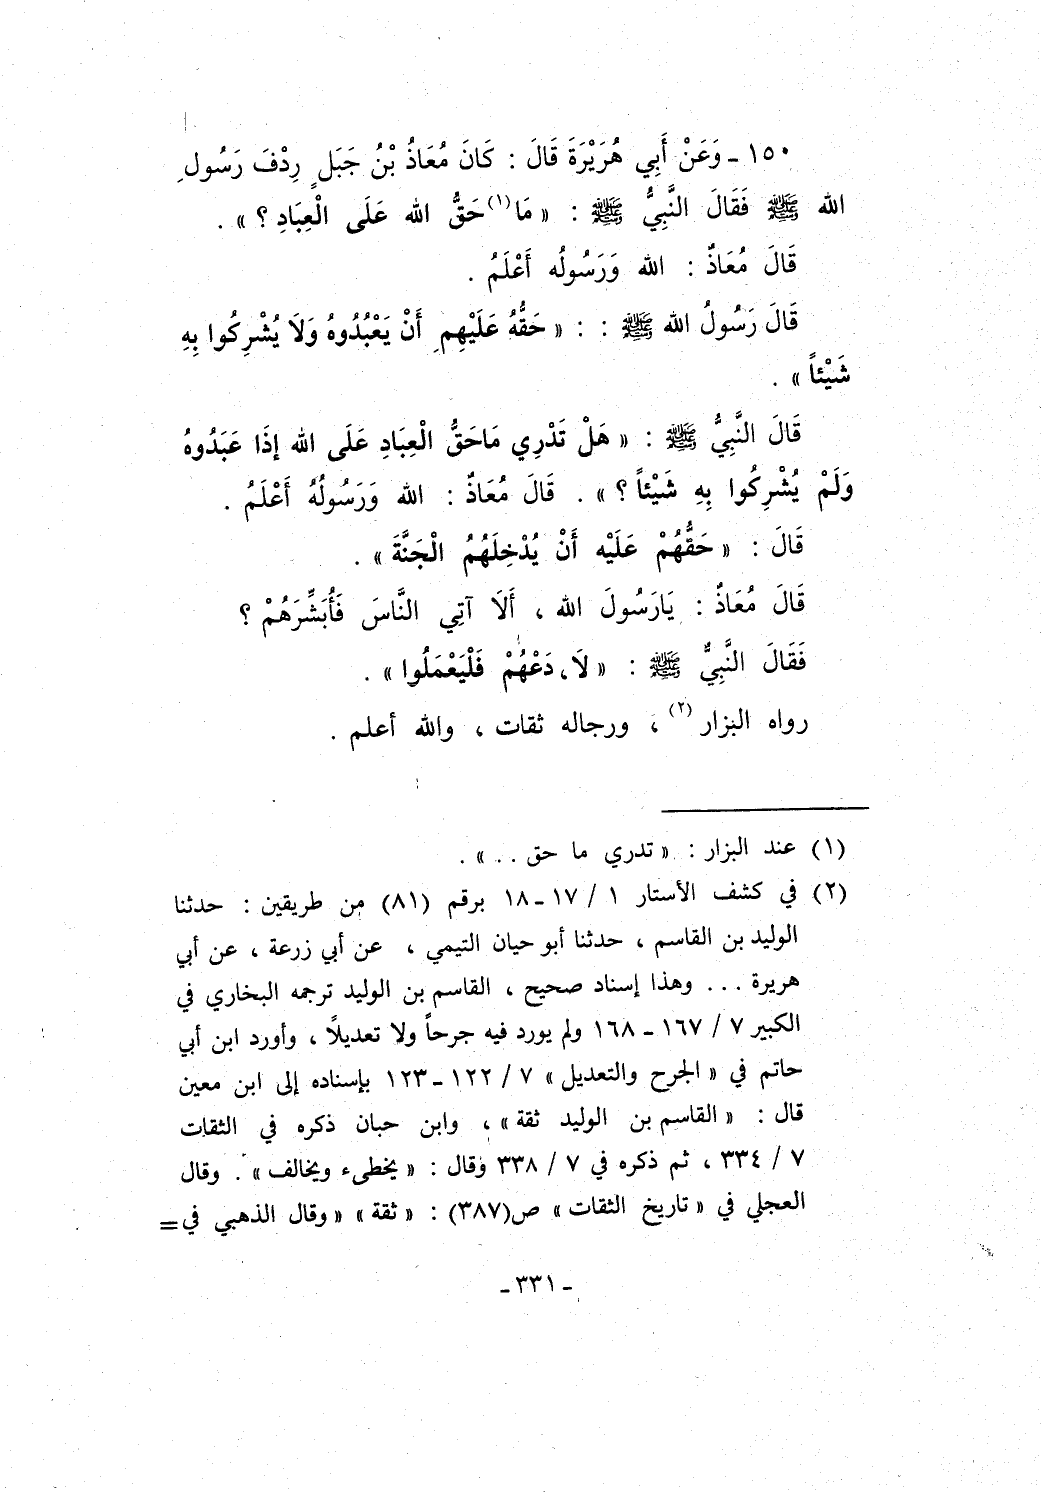 ١٥٠ ـ وَعَنْ أَبِي هُرَيْرَةَ قَالَ : كَانَ مُعَاذُ بْنُ جَبَلٍ رِدْفَ رَسُولِ
الله ﷺ فَقَالَ النَّبِيُّ ﷺ : « مَا(١) حَقُّ الله عَلَى الْعِبَادِ ؟ » .
قَالَ مُعَاذٌ : الله وَرَسُولُه أَعْلَمُ .
قَالَ رَسُولُ الله ﷺ : : « حَقُّهُ عَلَيْهِمِ أَنْ يَعْبُدُوهُ وَلَا يُشْرِكُوا بِهِ
شَيْئاً » .
قَالَ النَّبِيُّ ﷺ : « هَلْ تَدْرِي مَاحَقُّ الْعِبَادِ عَلَى الله إذَا عَبَدُوهُ
وَلَمْ يُشْرِكُوا بِهِ شَيْئاً ؟ » . قَالَ مُعَاذٌ : الله وَرَسُولُهُ أَعْلَمُ .
قَالَ : « حَقُّهُمْ عَلَيْه أَنْ يُدْخِلَهُمُ الْجَنَّةَ » .
قَالَ مُعَاذٌ : يَارَسُولَ الله ، أَلَا آتِي النَّاسَ فَأُبَشِّرَهُمْ ؟
فَقَالَ النَّبِيُّ ﷺ : « لَا، دَعْهُمْ فَلْيَعْمَلُوا » .
رواه البزار(٢) ، ورجاله ثقات ، والله أعلم .
(١) عند البزار : « تدري ما حق . . » .
(٢) في كشف الأستار ١ / ١٧ ـ ١٨ برقم (٨١) من طريقين : حدثنا
الوليد بن القاسم ، حدثنا أبو حيان التيمي ، عن أبي زرعة ، عن أبي
هريرة . . . وهذا إسناد صحيح ، القاسم بن الوليد ترجمه البخاري في
الكبير ٧ / ١٦٧ ـ ١٦٨ ولم يورد فيه جرحاً ولا تعديلًا ، وأورد ابن أبي
حاتم في « الجرح والتعديل » ٧ / ١٢٢ ـ ١٢٣ بإسناده إلى ابن معين
قال : « القاسم بن الوليد ثقة » ، وابن حبان ذكره في الثقات
٧ / ٣٣٤ ، ثم ذكره في ٧ / ٣٣٨ وقال : « يخطىء ويخالف » . وقال
العجلي في « تاريخ الثقات » ص(٣٨٧) : « ثقة » « وقال الذهبي في =
ـ ٣٣١ ـ